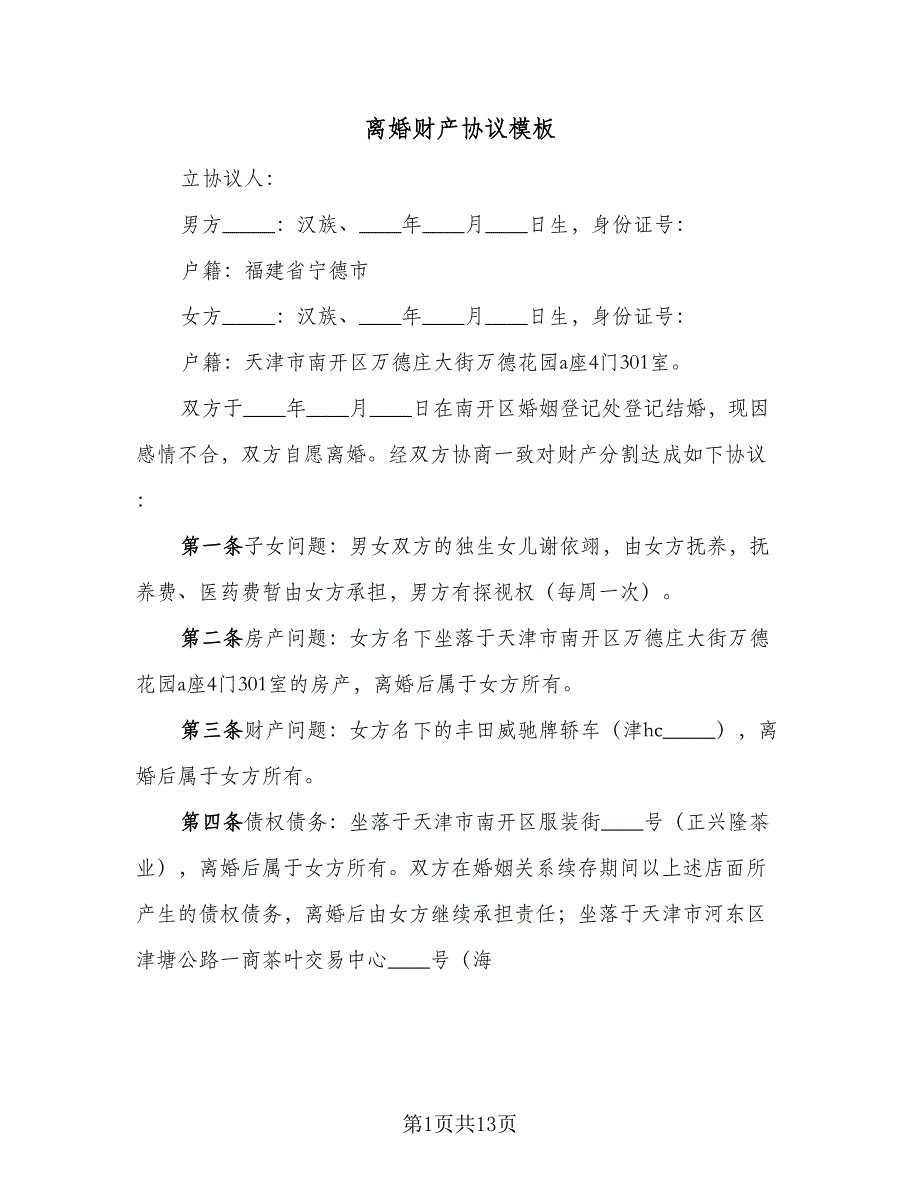 离婚财产协议模板
立协议人：
男方_____：汉族、____年____月____日生，身份证号：
户籍：福建省宁德市
女方_____：汉族、____年____月____日生，身份证号：
户籍：天津市南开区万德庄大街万德花园a座4门301室。
双方于____年____月____日在南开区婚姻登记处登记结婚，现因
感情不合，双方自愿离婚。经双方协商一致对财产分割达成如下协议
：
第一条子女问题：男女双方的独生女儿谢依翊，由女方抚养，抚
养费、医药费暂由女方承担，男方有探视权（每周一次）。
第二条房产问题：女方名下坐落于天津市南开区万德庄大街万德
花园a座4门301室的房产，离婚后属于女方所有。
第三条财产问题：女方名下的丰田威驰牌轿车（津hc_____），离
婚后属于女方所有。
第四条债权债务：坐落于天津市南开区服装街____号（正兴隆茶
业），离婚后属于女方所有。双方在婚姻关系续存期间以上述店面所
产生的债权债务，离婚后由女方继续承担责任；坐落于天津市河东区
津塘公路一商茶叶交易中心____号（海
第1页共13页